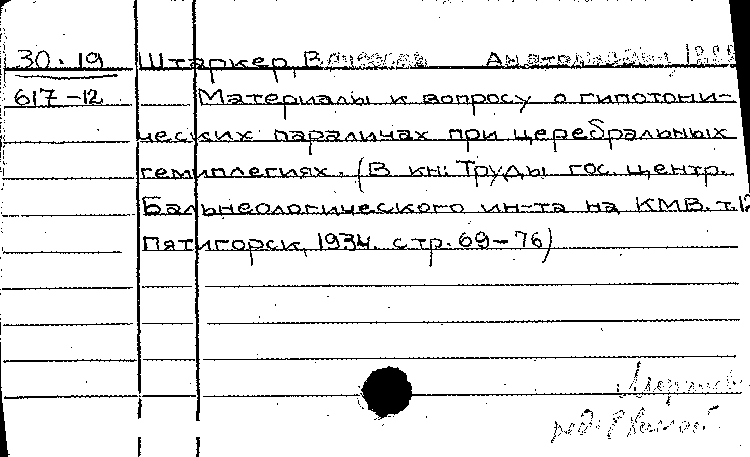 30.19 Штаркер, В
617-12 Материалы к вопросу о гипотони-
ческих параличах при церебральных
гемиплегиях. (В кн: Труды гос. центр.
Бальнеологического ин-та на КМВ. т.12
Пятигорск, 1934. стр. 69-76)